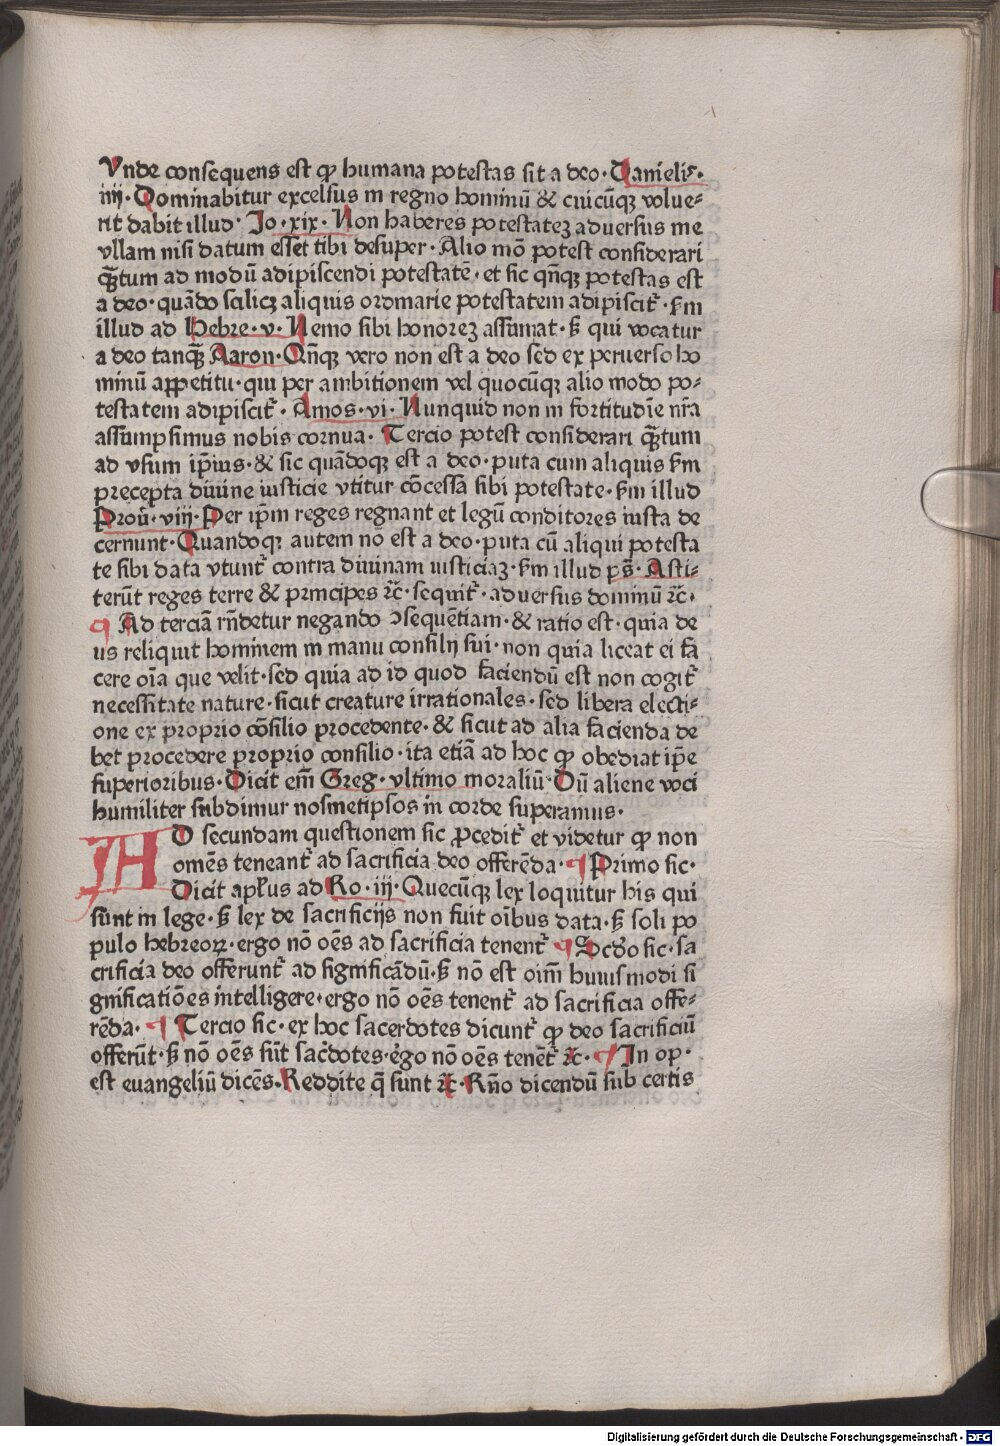 Vnde consequens est ꝙ humana potestas sit a deo· Danielis·
iiij· Dominabitur excelsus in regno hominū & cuicūqꝫ volue⸗
rit dabit illud· Jo·xix· Non haberes potestateꝫ aduersus me
vllam nisi datum esset tibi desuper· Alio mō potest considerari
qꝫ̄tum ad modū adipiscendi potestatē· et sic qn̄qꝫ potestas est
a deo· quādo scilicꝫ aliquis ordinarie potestatem adipiscit᷑· ẜm
illud ad Hebre·v· Nemo sibi honoreꝫ assumat· ẜ qui vocatur
a deo tanqꝫ̄ Aaron· Qn̄qꝫ vero non est a deo sed ex peruerso ho
minū appetitu· qui per ambitionem vel quocūqꝫ alio modo po⸗
testatem adipiscit᷑· Amos·vi· Nunquid non in fortitudīe nr̄a
assumpsimus nobis cornua· Tercio potest considerari qꝫ̄tum
ad vsum ip̄ius· & sic quādoqꝫ est a deo· puta cum aliquis ẜm
precepta diuine iusticie vtitur cōcessa sibi potestate· ẜm illud
Prou̅·viij· Per ip̄m reges regnant et legū conditores iusta de
cernunt· Quandoqꝫ autem nō est a deo· puta cū aliqui potesta
te sibi data vtunt᷑ contra diuinam iusticiaꝫ· ẜm illud ps̄· Asti⸗
terūt reges terre & principes ⁊c̄· sequit᷑· aduersus dominū ⁊c̄·
¶ Ad terciā rn̄detur negando ↄsequētiam· & ratio est· quia de
us reliquit hominem in manu consilij sui· non quia liceat ei fa
cere oīa que velit· sed quia ad id quod faciendū est non cogit᷑
necessitate nature· sicut creature irrationales· sed libera electi⸗
one ex proprio cōsilio procedente· & sicut ad alia facienda de
bet procedere proprio consilio· ita etiā ad hoc ꝙ obediat ip̄e
superioribus· Dicit em̄ Greg· vltimo moraliū· Dū aliene voci
humiliter subdimur nosmetipsos in corde superamus·
AD secundam questionem sic ꝓcedit᷑ et videtur ꝙ non
omēs teneant᷑ ad sacrificia deo offerēda· ¶ Primo sic·
Dicit apl̄us ad Ro·iij· Quecūqꝫ lex loquitur his qui
sunt in lege· ẜ lex de sacrificijs non fuit oībus data· ẜ soli po
pulo hebreoꝝ· ergo nō oēs ad sacrificia tenent᷑ ¶ Scd̄o sic· sa
crificia deo offerunt᷑ ad significādū· ẜ nō est oim̄ huiusmodi si
gnificatiōes intelligere· ergo nō oēs tenent᷑ ad sacrificia offe⸗
rēda· ¶ Tercio sic· ex hoc sacerdotes dicunt᷑ ꝙ deo sacrificiū
offerūt· ẜ nō oēs sūt sac̄dotes· ērgo nō oēs tenēt᷑ ⁊c̄· ¶ In op·
est euangeliū dicēs· Reddite q̄ sunt ⁊c̄· Rn̄o dicendū sub certis
Digitalisierung gefördert durch die Deutsche Forschungsgemeinschaft - DFG